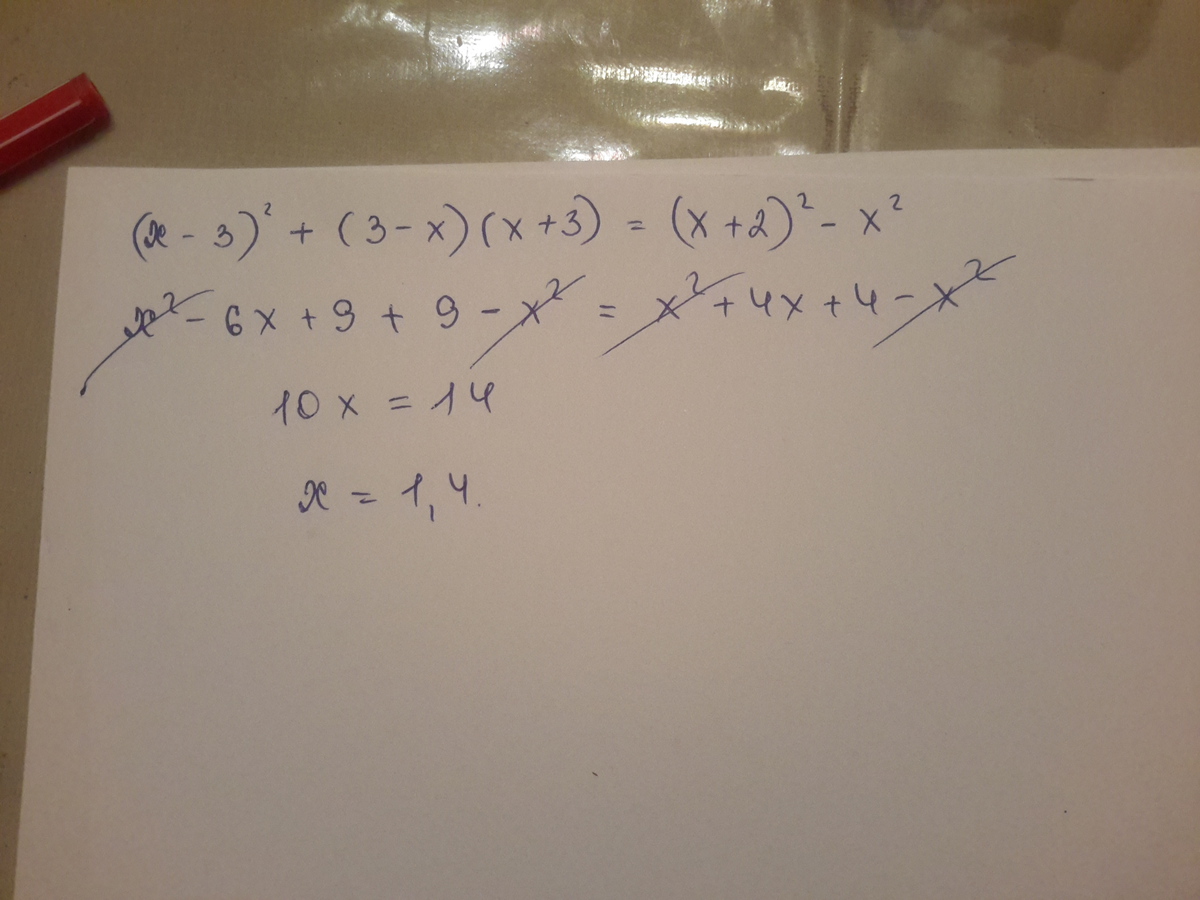 (x - 3)² + (3 - x)(x + 3) = (x + 2)² - x²
x² - 6x + 9 + 9 - x² = x² + 4x + 4 - x²
10x = 14
x = 1,4.